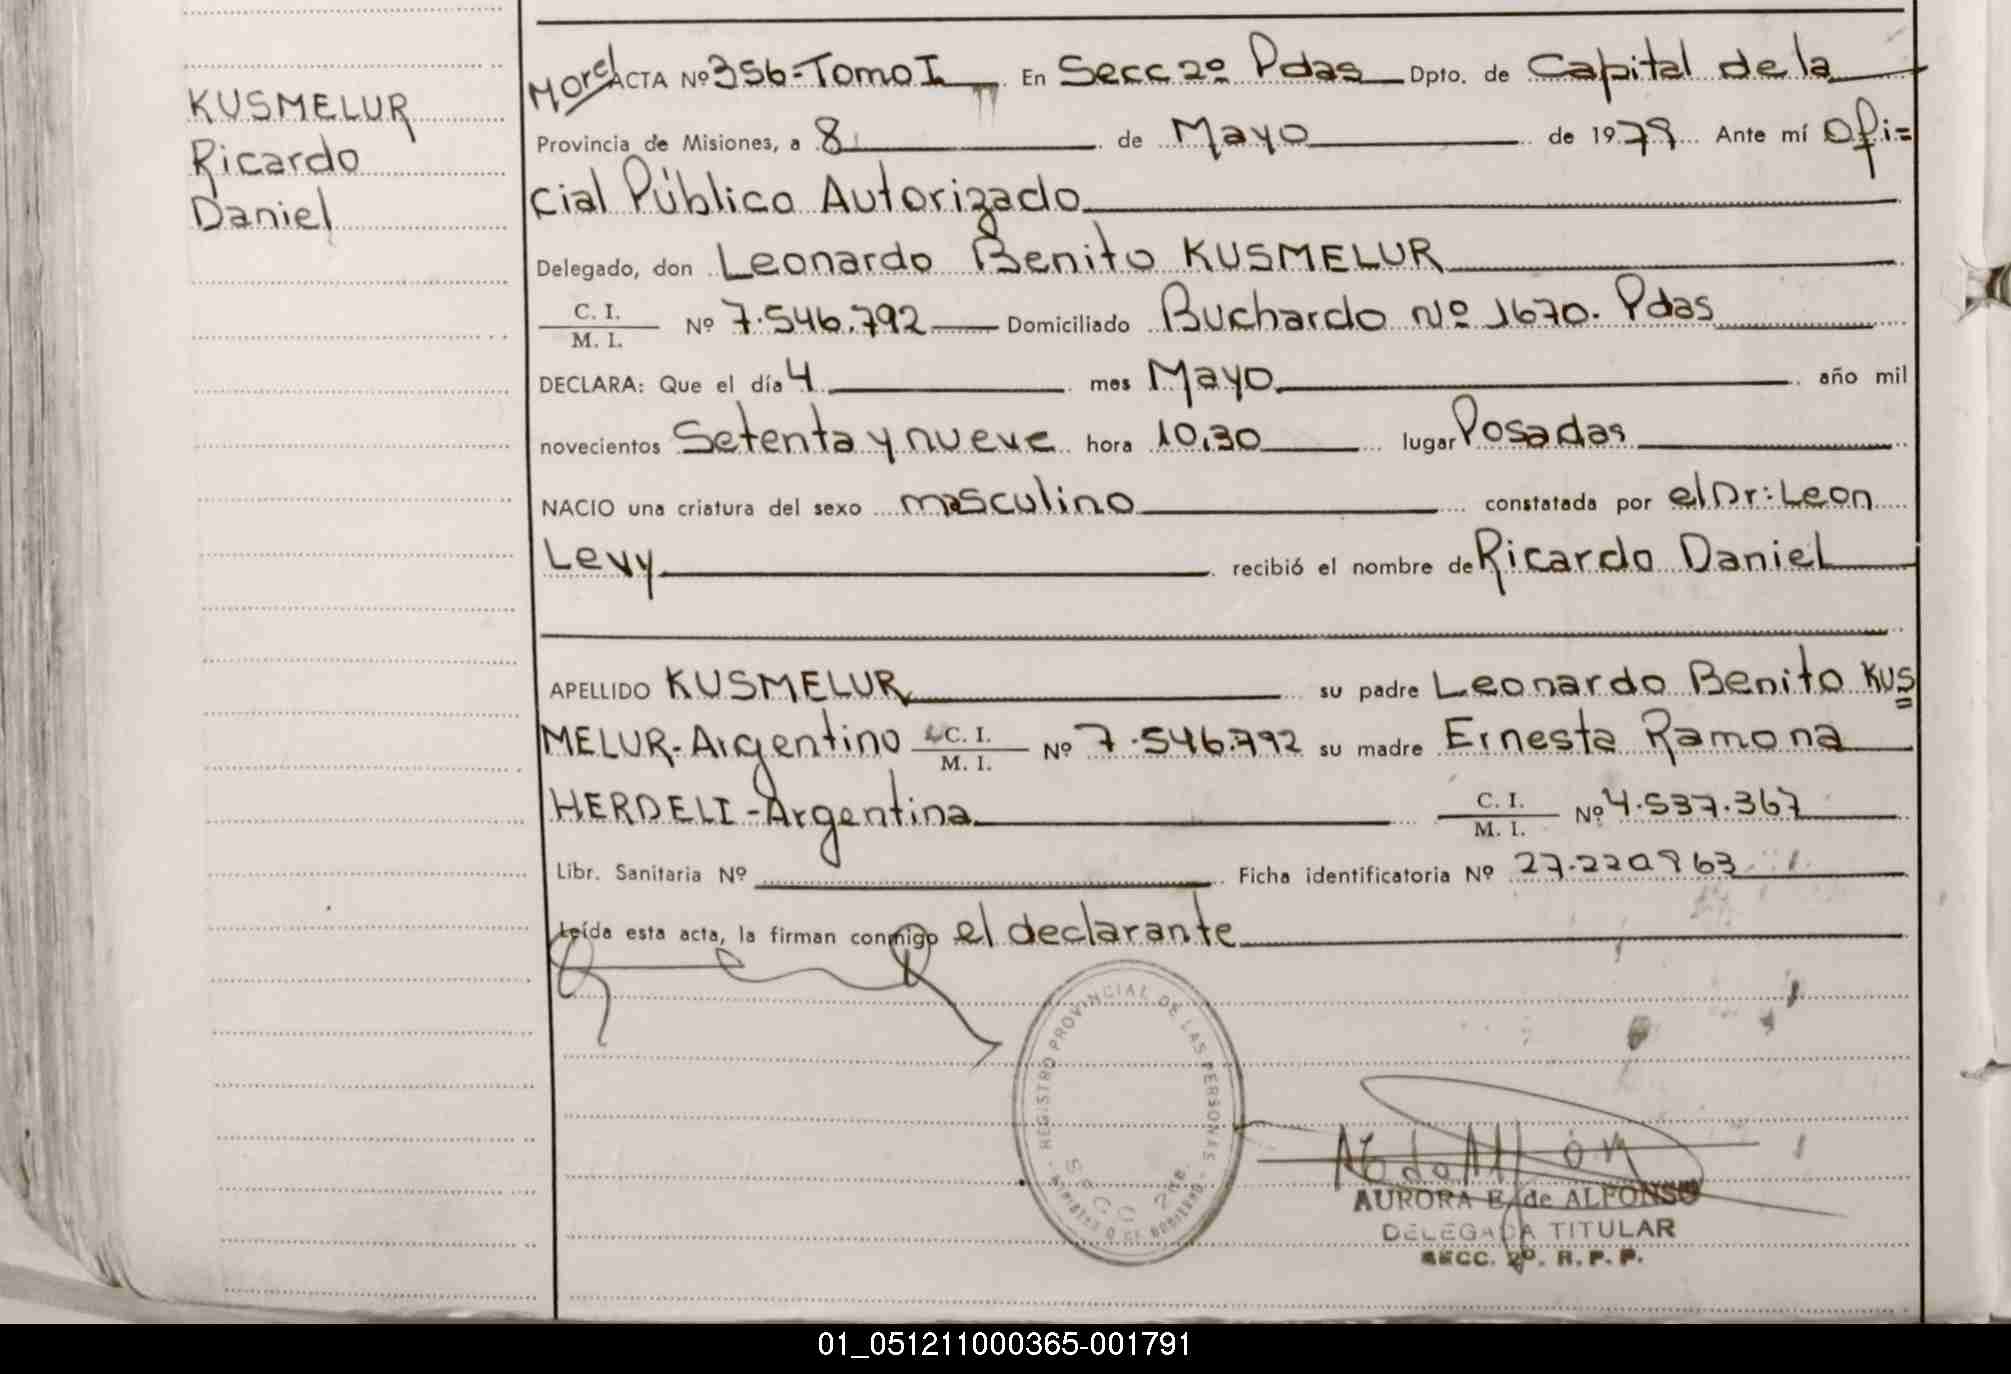 KUSMELUR
Ricardo
Daniel
ACTA Nº 356-Tomo I En Secc 2º Pdas Dpto. de Capital de la
Provincia de Misiones, a 8 de Mayo de 1979 Ante mí Ofi=
cial Público Autorizado
Delegado, don Leonardo Benito KUSMELUR
C. I.
M. I.
Nº 7.546.792 Domiciliado Buchardo Nº 1670. Pdas
DECLARA: Que el día 4 mes Mayo año mil
novecientos Setenta y nueve hora 10,30 lugar Posadas
NACIO una criatura del sexo masculino constatada por el Dr: Leon
Levy recibió el nombre de Ricardo Daniel
APELLIDO KUSMELUR su padre Leonardo Benito KUS=
MELUR-Argentino C. I. M. I. Nº 7.546.792 su madre Ernesta Ramona
HERDELI-Argentina C. I. M. I. Nº 4.537.367
Libr. Sanitaria Nº Ficha identificatoria Nº 27.220963
Leída esta acta, la firman conmigo el declarante
REGISTRO PROVINCIAL DE LAS PERSONAS
SECC 2da.
MINISTERIO DE GOBIERNO
AURORA E. de ALFONSO
DELEGADA TITULAR
SECC. 2º. R. P. P.
01_051211000365-001791